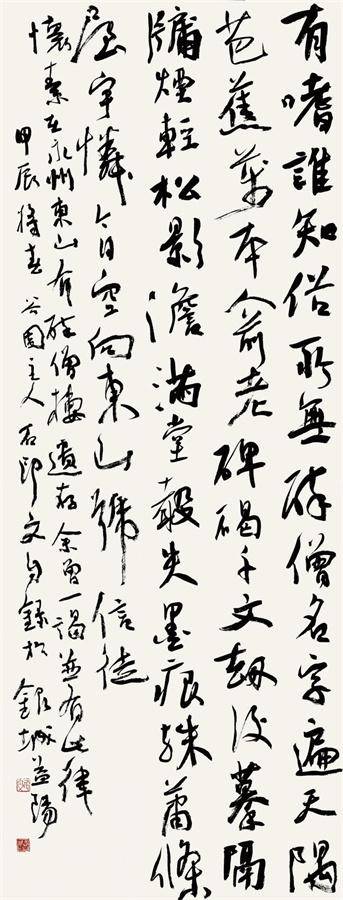 有嗜誰知俗所無醉僧名字遍天隅
芭蕉萬本人前老碑碣千文劫後摹隔
牖煙輕松影澹滿堂失墨痕殊蕭條
屋宇憐今日空向東山號信徒
懷素在永州東山有醉僧樓遺存余曾一謁並有此律
甲辰春谷園主人石印文自錄於銀城益陽